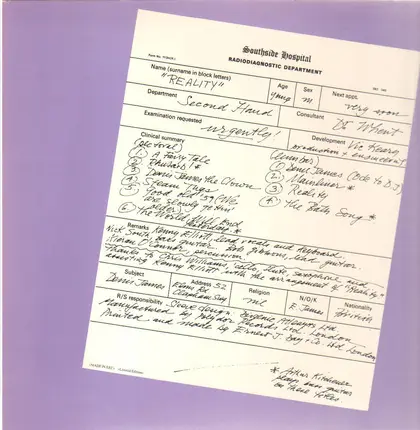 Southside Hospital
RADIODIAGNOSTIC DEPARTMENT
Name (surname in block letters)
"REALITY"
Age
Young
Sex
M
Next appt.
very soon
Department
Second Hand
Consultant
Dr Wheat
Examination requested
urgently!
Development Vic Keary
production & engineering
Clinical summary
(pectoral)
(lumbar)
① A Fairy Tale
② Rhubarb! *
③ Denis James the Clown
④ Steam Tugs
⑤ Good old '59 (We
are slowly gettin'
older)
⑥ The World Will End
Yesterday *
① Denis James (Ode to D.J.)
② Mainliner *
③ Reality
④ The Bath Song *
Remarks Kenny Elliott, lead vocals and keyboard.
Nick South, bass guitar. Bob Gibbons, lead guitar.
Kieran O'Connor, percussion
Thanks to Chris Williams, 'cello, flute, saxophone and
assisting Kenny Elliott with the arrangement of "Reality"
Subject
Denis James
Address 52
Elms Rd
Clapham Say
Religion
nil
N/O/K
E. James
Nationality
British
R/S responsibility Steve Gough, Eugenic Artways Ltd
Manufactured by Polydor Records Ltd. London
Printed and made by Ernest J. Day & Co. Ltd. London
* Arthur Kitchener
plays bass guitar
on these titles